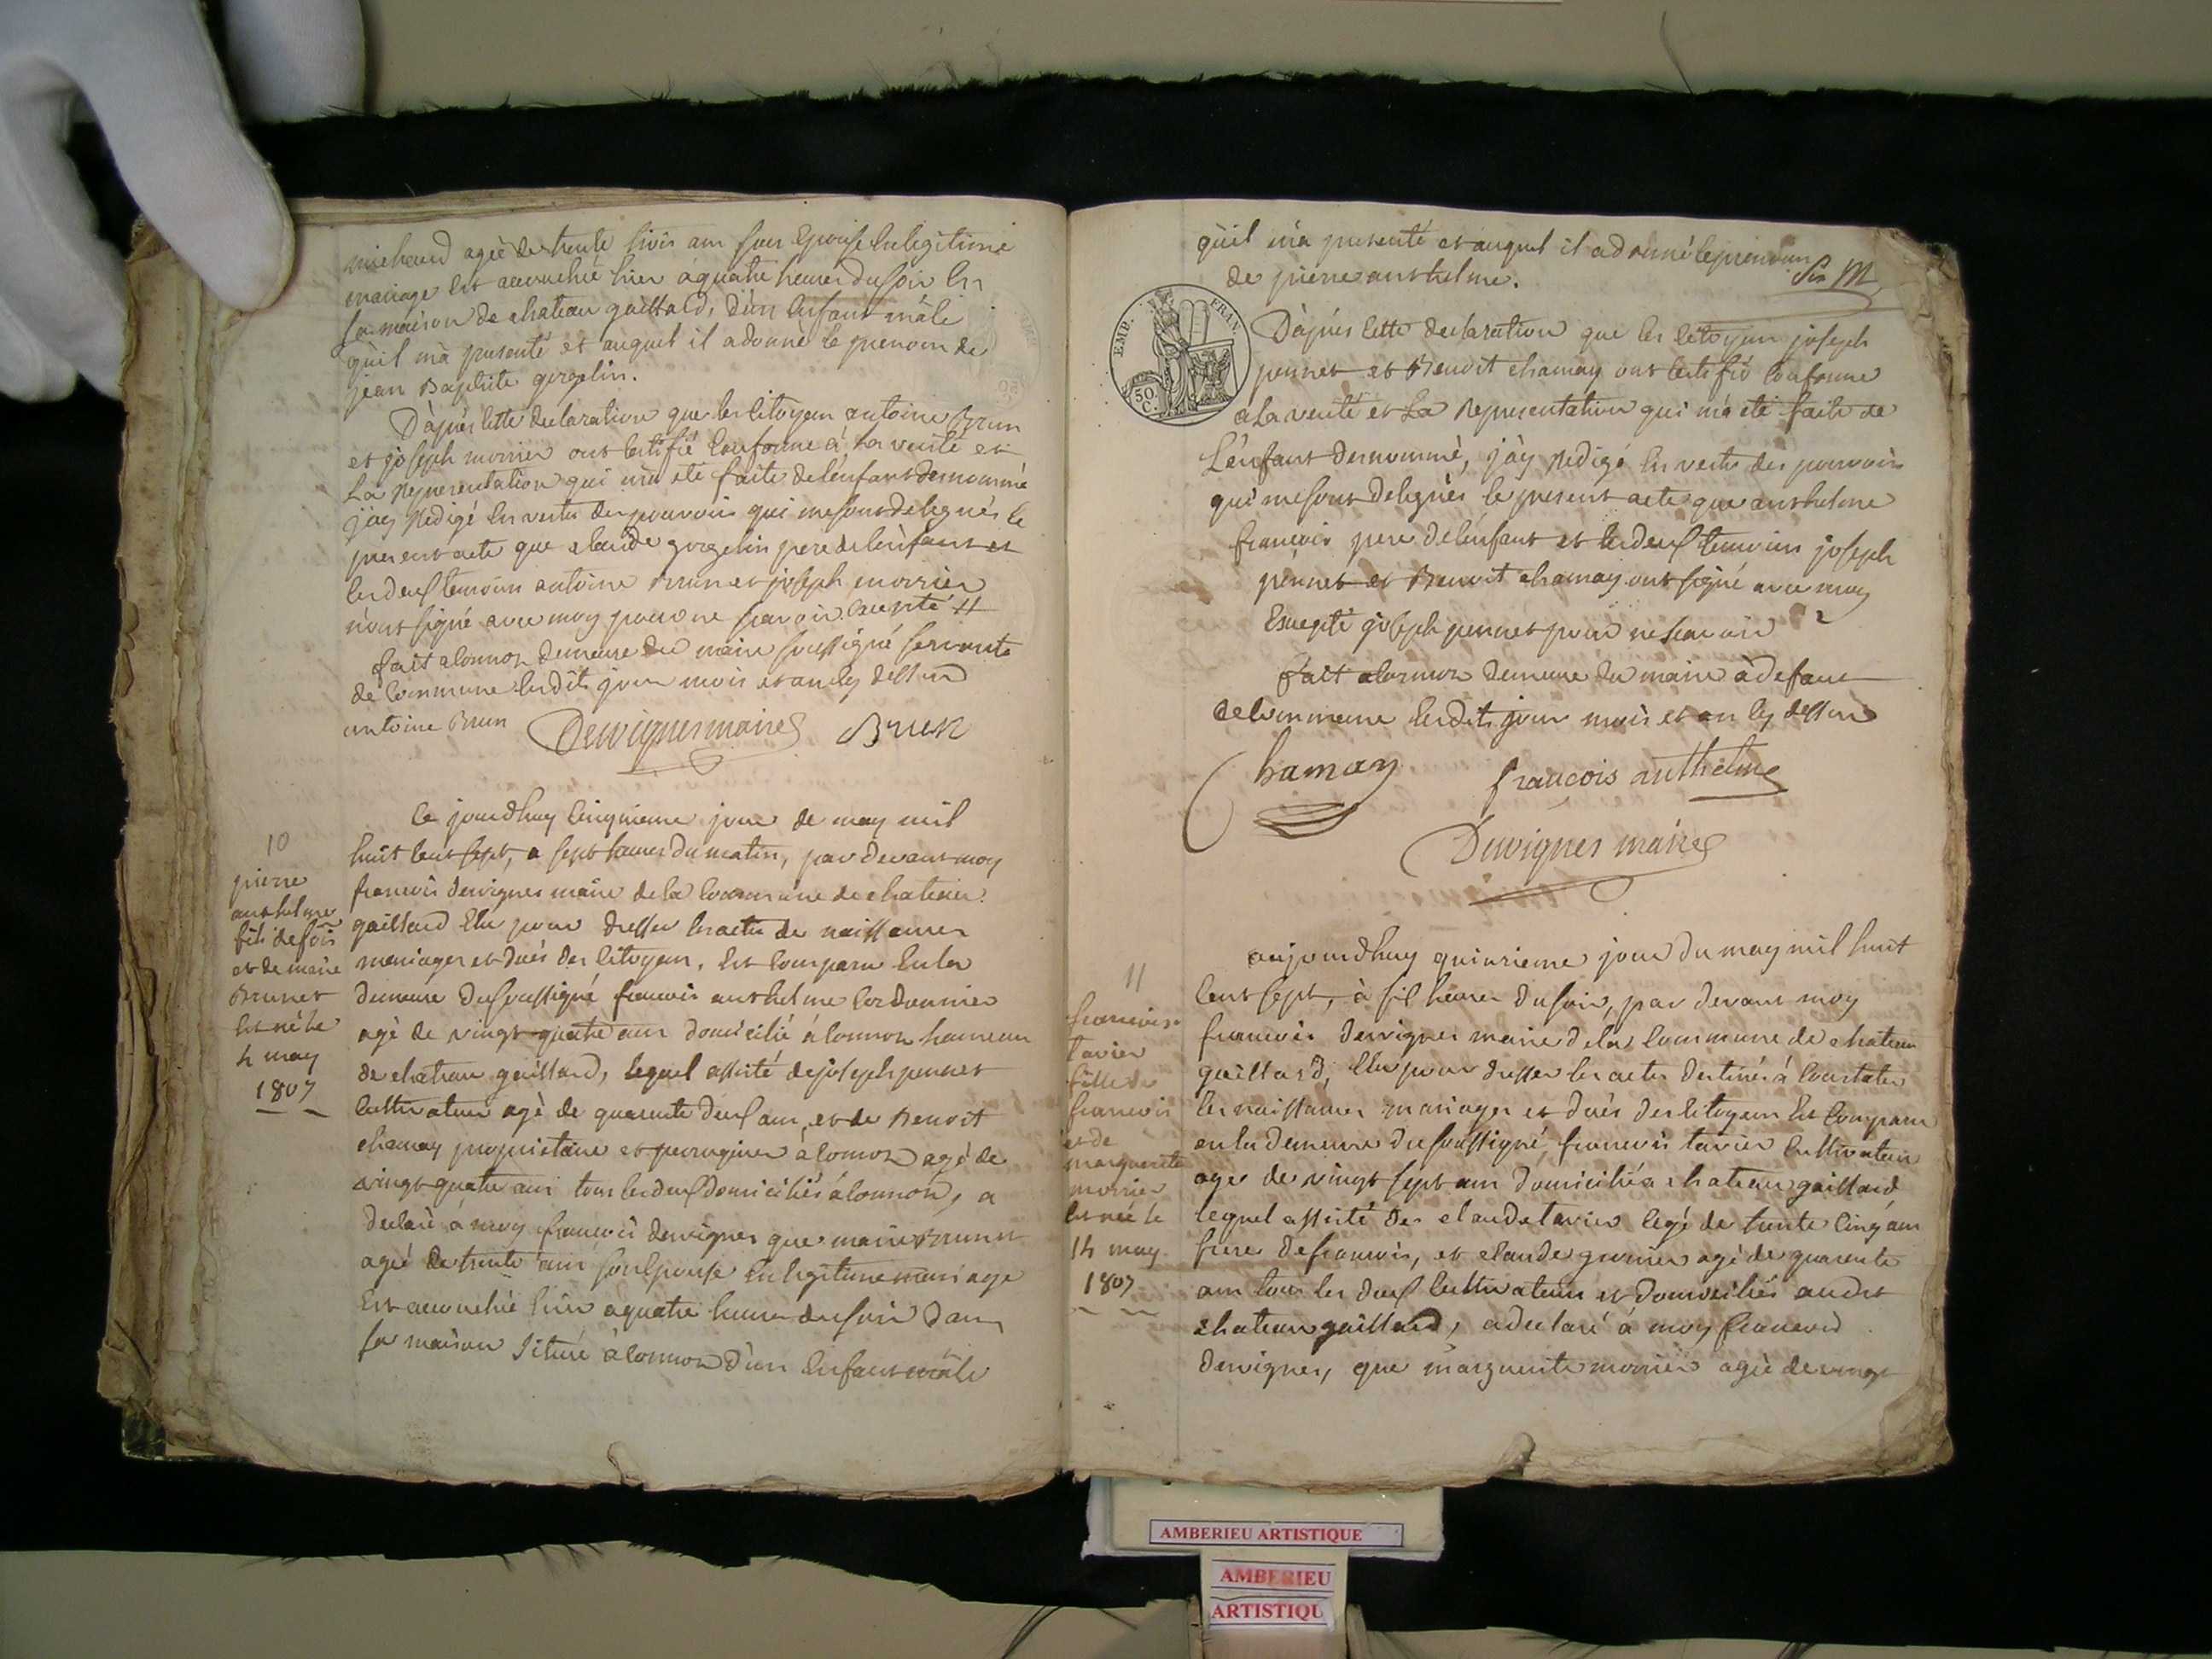 michaud agée de trente trois ans son Epouse En legitime
mariage Est accouchée hier à quatre heures du soir En
sa maison de chateau gaillard, d'un Enfant mâle
qu'il m'a presenté et auquel il a donné le prenom de
jean Baptiste gorgelin.
D'après Cette declaration que les Citoyens antoine Brun
et joseph morrier ont Certifié Conforme à La verité et
La Representation qui m'a eté faite de lénfant denommé
j'ay Redigé En vertu des pouvoirs qui me sont delegués le
present acte que claude gorgelin pere de lénfant et
les deux temoins antoine Brun et joseph morrier
n'ont signé avec moy pour ne scavoir Excepté
fait a Cormoz demeure du maire soussigné servante
de Commune lesdits jour mois et an Cy dessus
antoine Brun Dervignes maire Brun
Ce jourdhuy Cinquieme jour de may mil
huit Cent sept, a sept heures du matin, par devant moy
francois dervignes maire de la Commune de chateau
gaillard Elu pour dresser les actes de naissances
mariages et Decés des Citoyens, Est Comparu En la
demeure du soussigné francois anthelme Cordonnier
agé de vingt quatre ans domicilié à Cormoz hameau
de chateau gaillard, lequel assisté de joseph pennet
Cultivateur agé de quarente deux ans, et de Benoit
chamay proprietaire et à Cormoz agé de
vingt quatre ans tous les deux domiciliés à Cormoz, a
declaré à moy francois dervignes que marie Brunet
agée de trente ans son Epouse En legitime mariage
Est accouchée hier a quatre heures du soir dans
sa maison Située à Cormoz d'un Enfant mâle
10
pierre
anthelme
fils de fois
et de marie
Brunet
Est né le
4 may
1807
qu'il m'a presenté et auquel il a donné le prenom
de pierre anthelme.
Six M
EMP. FRAN.
50 C.
D'après Cette declaration que les Citoyens joseph
pennet et Benoit chamay ont Certifié Conforme
a La verité et La Representation qui m'a eté faite de
L'énfant denommé, j'ay Redigé En vertu des pouvoirs
qui me sont delegués le present acte que anthelme
francois pere de lénfant et les deux temoins joseph
pennet et Benoit chamay ont signé avec moy
Excepté joseph pennet pour ne scavoir
fait a Cormoz demeure du maire à defaut
de Commune lesdits jour mois et an Cy dessus
Chamay francois anthelme
Dervignes maire
aujourdhuy quinzieme jour du may mil huit
Cent sept, à six heures du soir, par devant moy
francois dervignes maire de la Commune de chateau
gaillard, Elu pour dresser les actes destinés à Constater
les naissances mariages et decés des Citoyens Est Comparu
en la demeure du soussigné, francois tavier Cultivateur
agé de vingt sept ans domicilié a chateau gaillard
lequel assisté de claude tavier agé de trente Cinq ans
frere de francois, et claude grenier agé de quarente
ans tous les deux Cultivateurs et domiciliés audit
chateau gaillard, a declaré à moy francois
dervignes, que marguerite morrier agée de vingt
11
francoise
tavier
fille de
francois
et de
marguerite
morrier
Est née le
14 may
1807
AMBERIEU ARTISTIQUE
AMBERIEU
ARTISTIQU